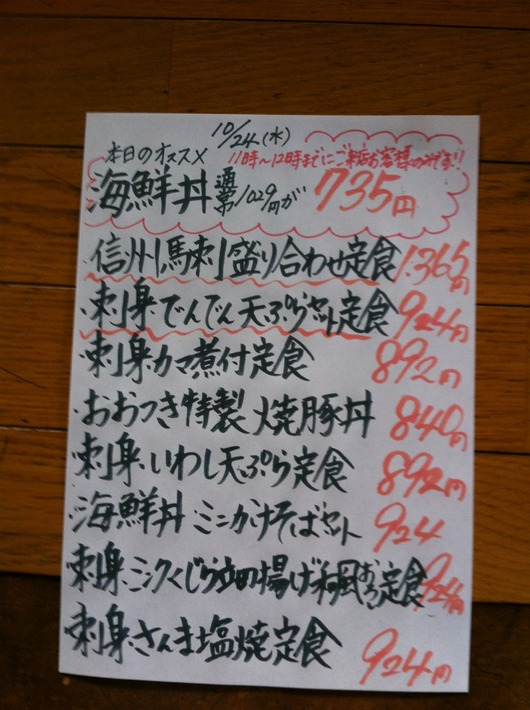 10/24(水)
本日のオススメ 11時〜12時までにご来店お客様のみです!!
海鮮丼 通常1029円が 735円
・信州馬刺し盛り合わせ定食 1.365円
・刺身でんでん天ぷらセット定食 924円
・刺身カマ煮付定食 892円
・おおつき特製 焼豚丼 840円
・刺身いわし天ぷら定食 892円
・海鮮丼 ミニかけそばセット 924
・刺身ミンクくじら立田揚げ和風おろし定食 924円
・刺身さんま塩焼定食 924円